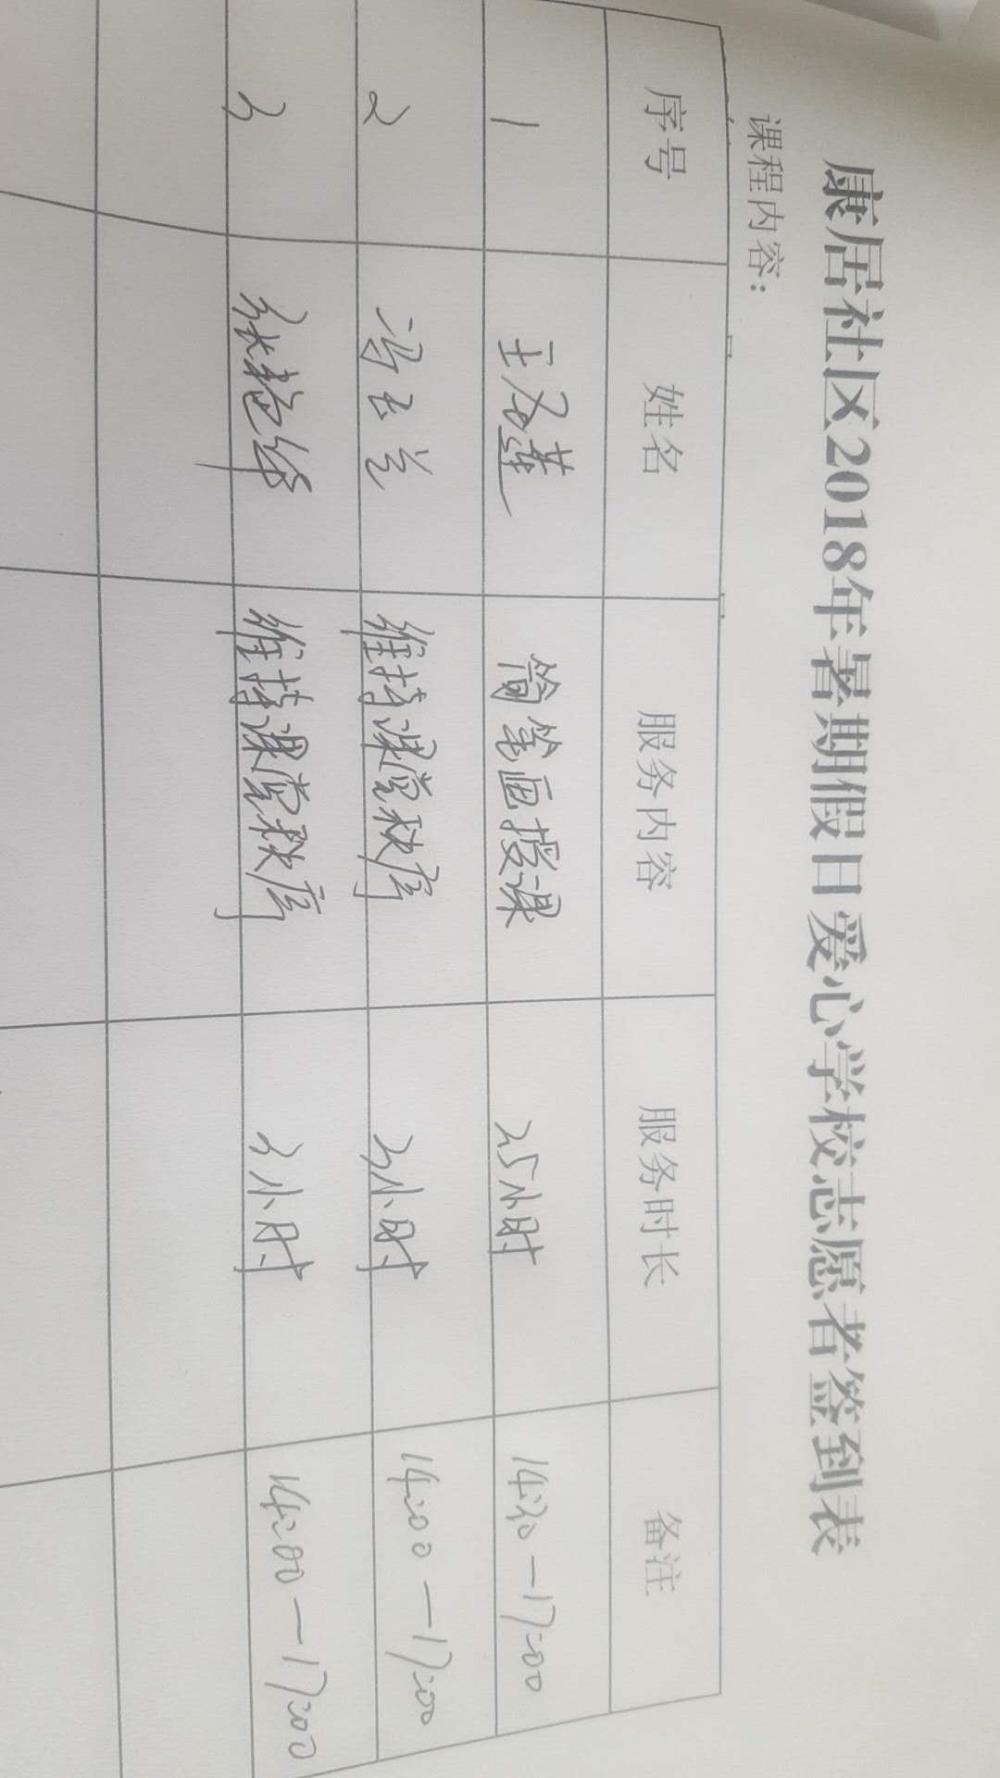 康居社区2018年暑期假日爱心学校志愿者签到表
课程内容：
序号 姓名 服务内容 服务时长 备注
1 王 莲 简笔画授课 2.5小时 14:30—17:00
2 冯玉兰 维持课堂秩序 3小时 14:00—17:00
3 张艳华 维持课堂秩序 3小时 14:00—17:00